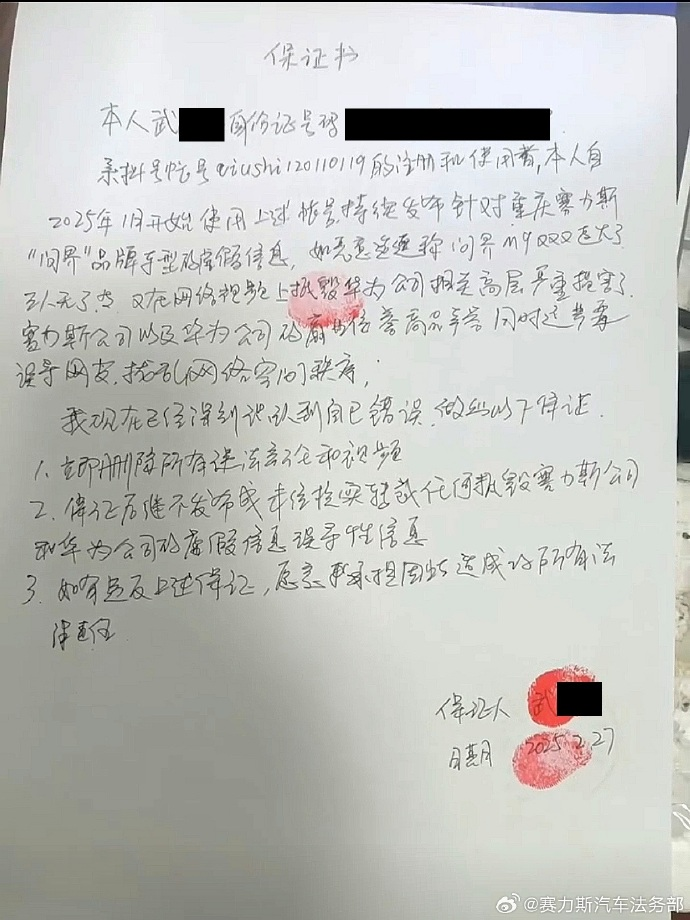 保证书
本人武 身份证号码
系抖音帐号qiushi120110119的注册和使用者,本人自
2025年1月开始使用上述帐号,持续发布针对重庆赛力斯
"问界"品牌车型的虚假信息, 如恶意造谣称问界M9
又在网络视频上抵毁华为公司相关高层严重损害了
赛力斯公司以及华为公司的 信誉商品声誉 同时
误导网友,扰乱网络空间秩序;
我现在已经深刻认识到自己错误,做出以下保证.
1. 立即删除所有违法 和视频
2. 保证后继不发布或未经核实 或任何抵毁赛力斯公司
和华为公司的虚假信息误导性信息
3. 如有违反上述保证,愿意 承担因此造成的所有法
律责任
保证人 武
日期 2025.2.27
@赛力斯汽车法务部